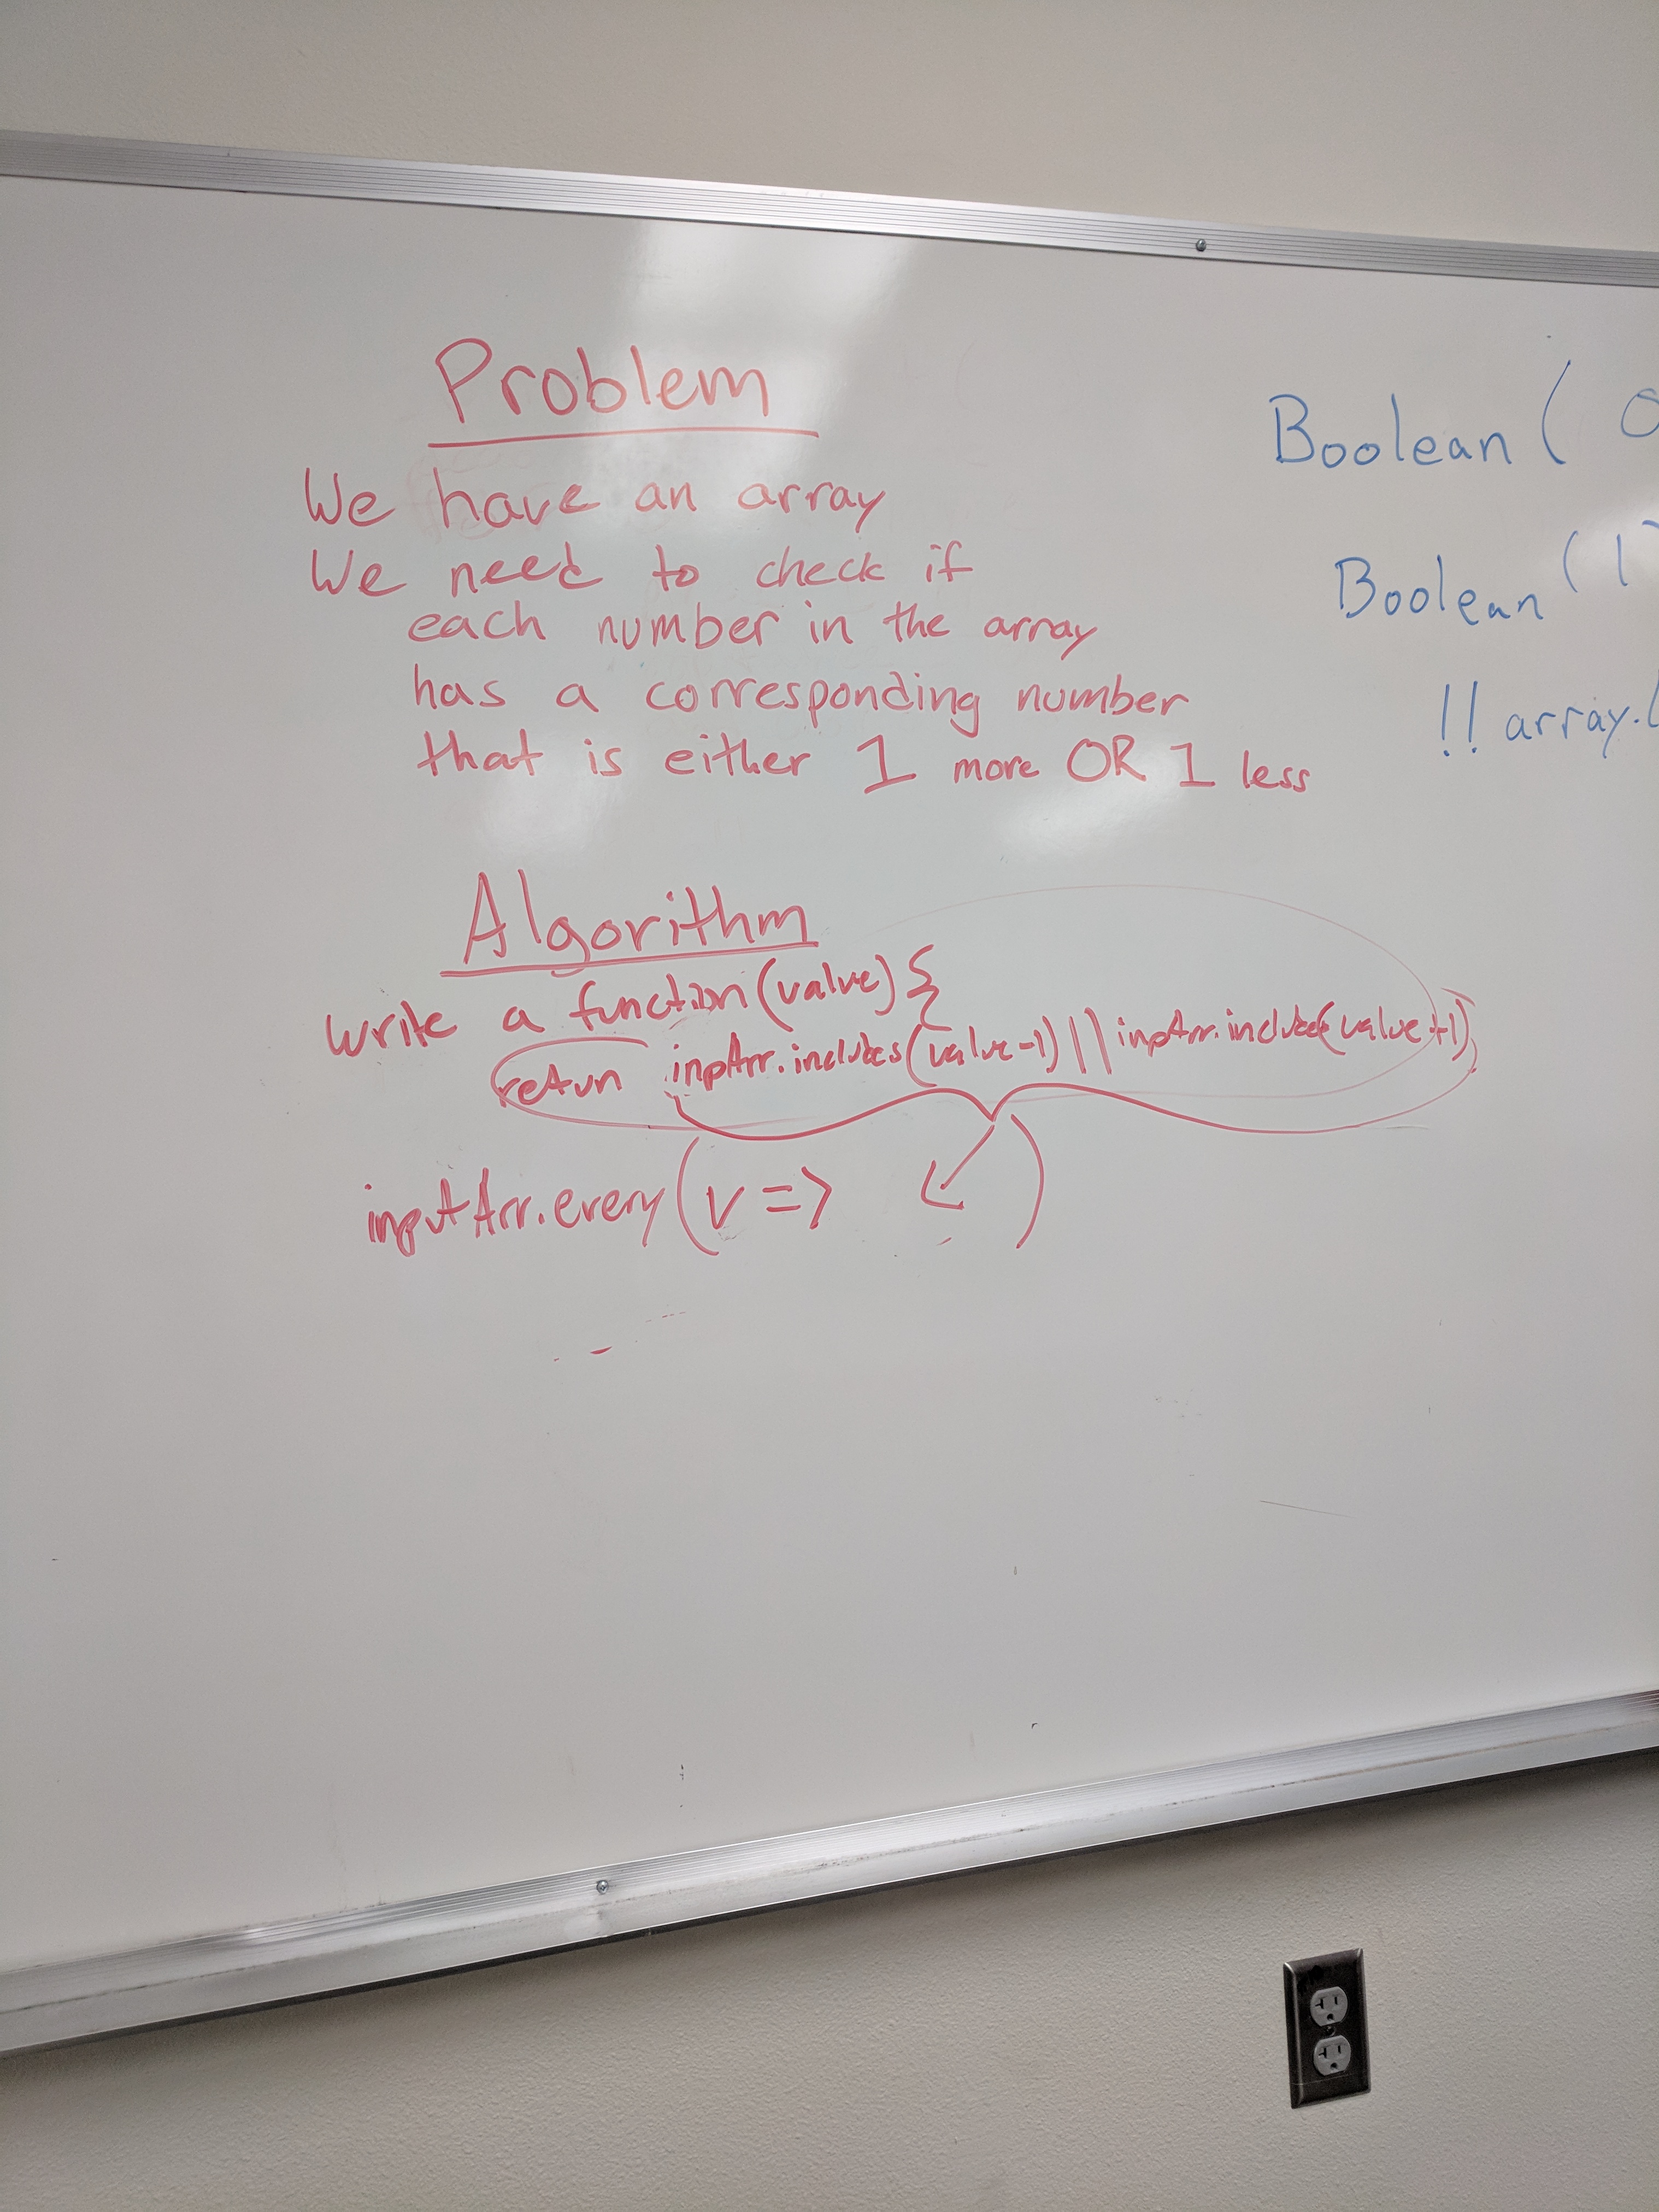 Problem
We have an array
We need to check if
each number in the array
has a corresponding number
that is either 1 more OR 1 less
Algorithm
write a function(value) {
return inpArr.includes(value-1) || inpArr.includes(value+1)
inputArr.every(v => )
Boolean(
Boolean(1)
!! array.